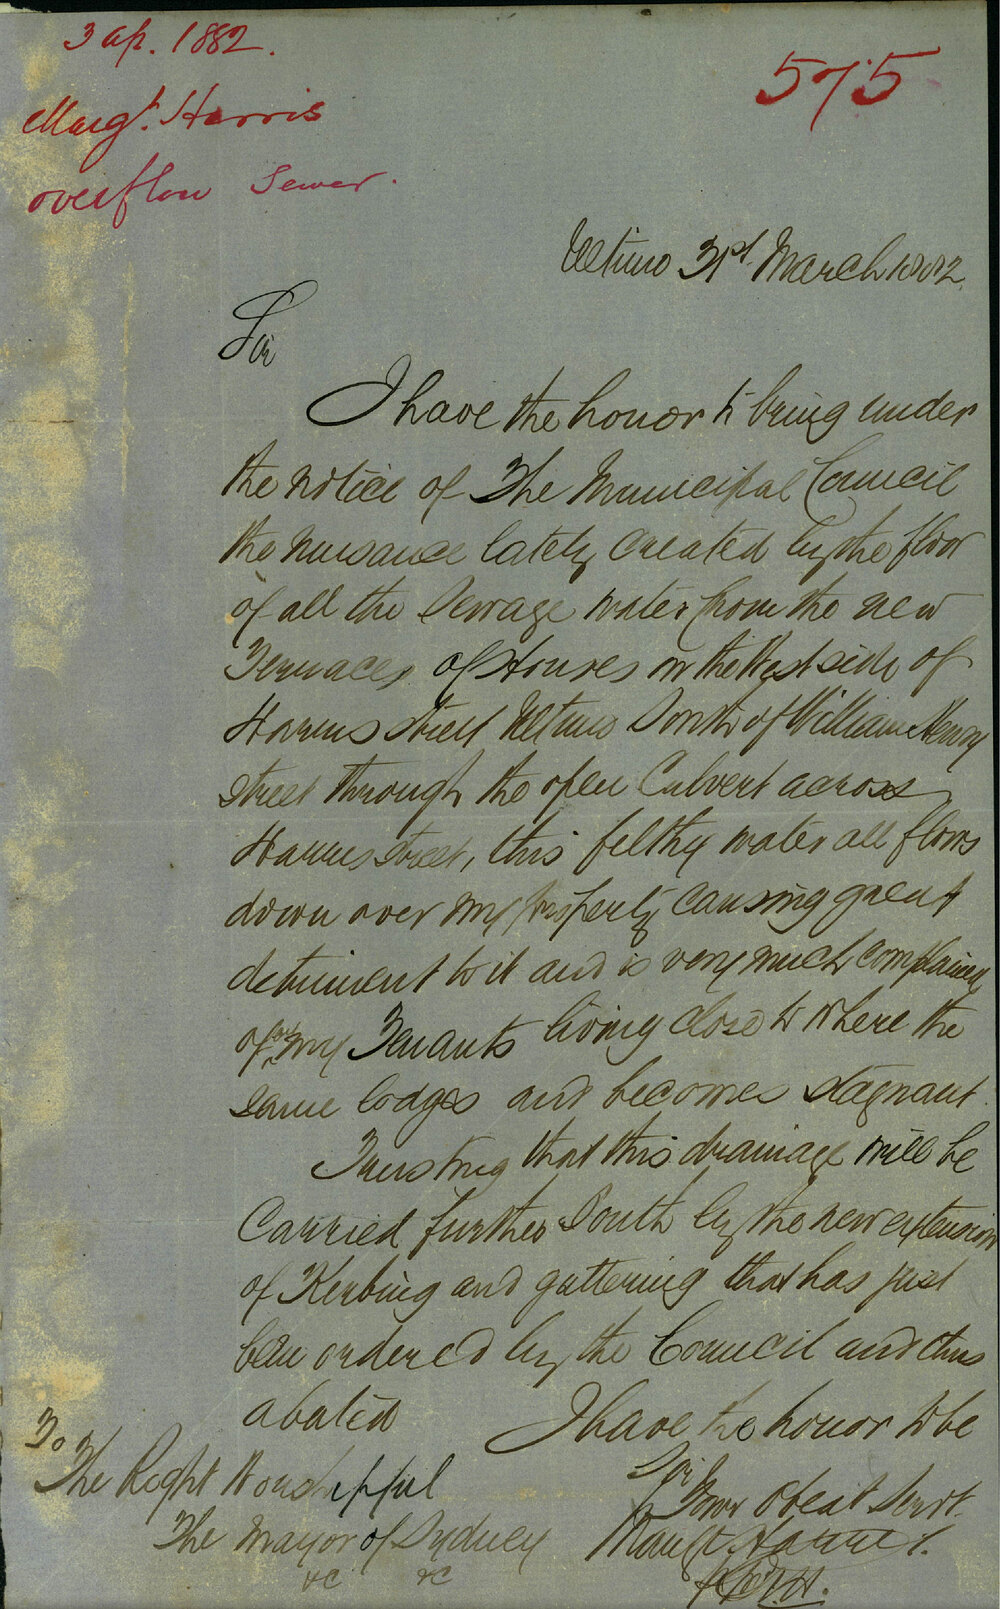 3 Ap. 1882.
575
Margt. Harris
overflow Sewer.
Ultimo 31st March 1882.
Sir
I have the honor to bring under
the notice of The Municipal Council
the nuisance lately created by the flow
of all the Sewage water from the new
Terraces of Houses on the West side of
Harris street Ultimo South of William Henry
street through the open Culvert across
Harris street, this filthy water all flows
down over my property causing great
detriment to it and is very much complained
of by my Tenants living close to where the
same lodges and becomes stagnant.
Trusting that this drainage will be
Carried further South by the new extension
of Kerbing and guttering that has just
been ordered by the Council and thus
abated
I have the honor to be
Sir
Your Obeat Servt.
Margt Harris.
To
The Right Worshipful
The Mayor of Sydney
&c &c